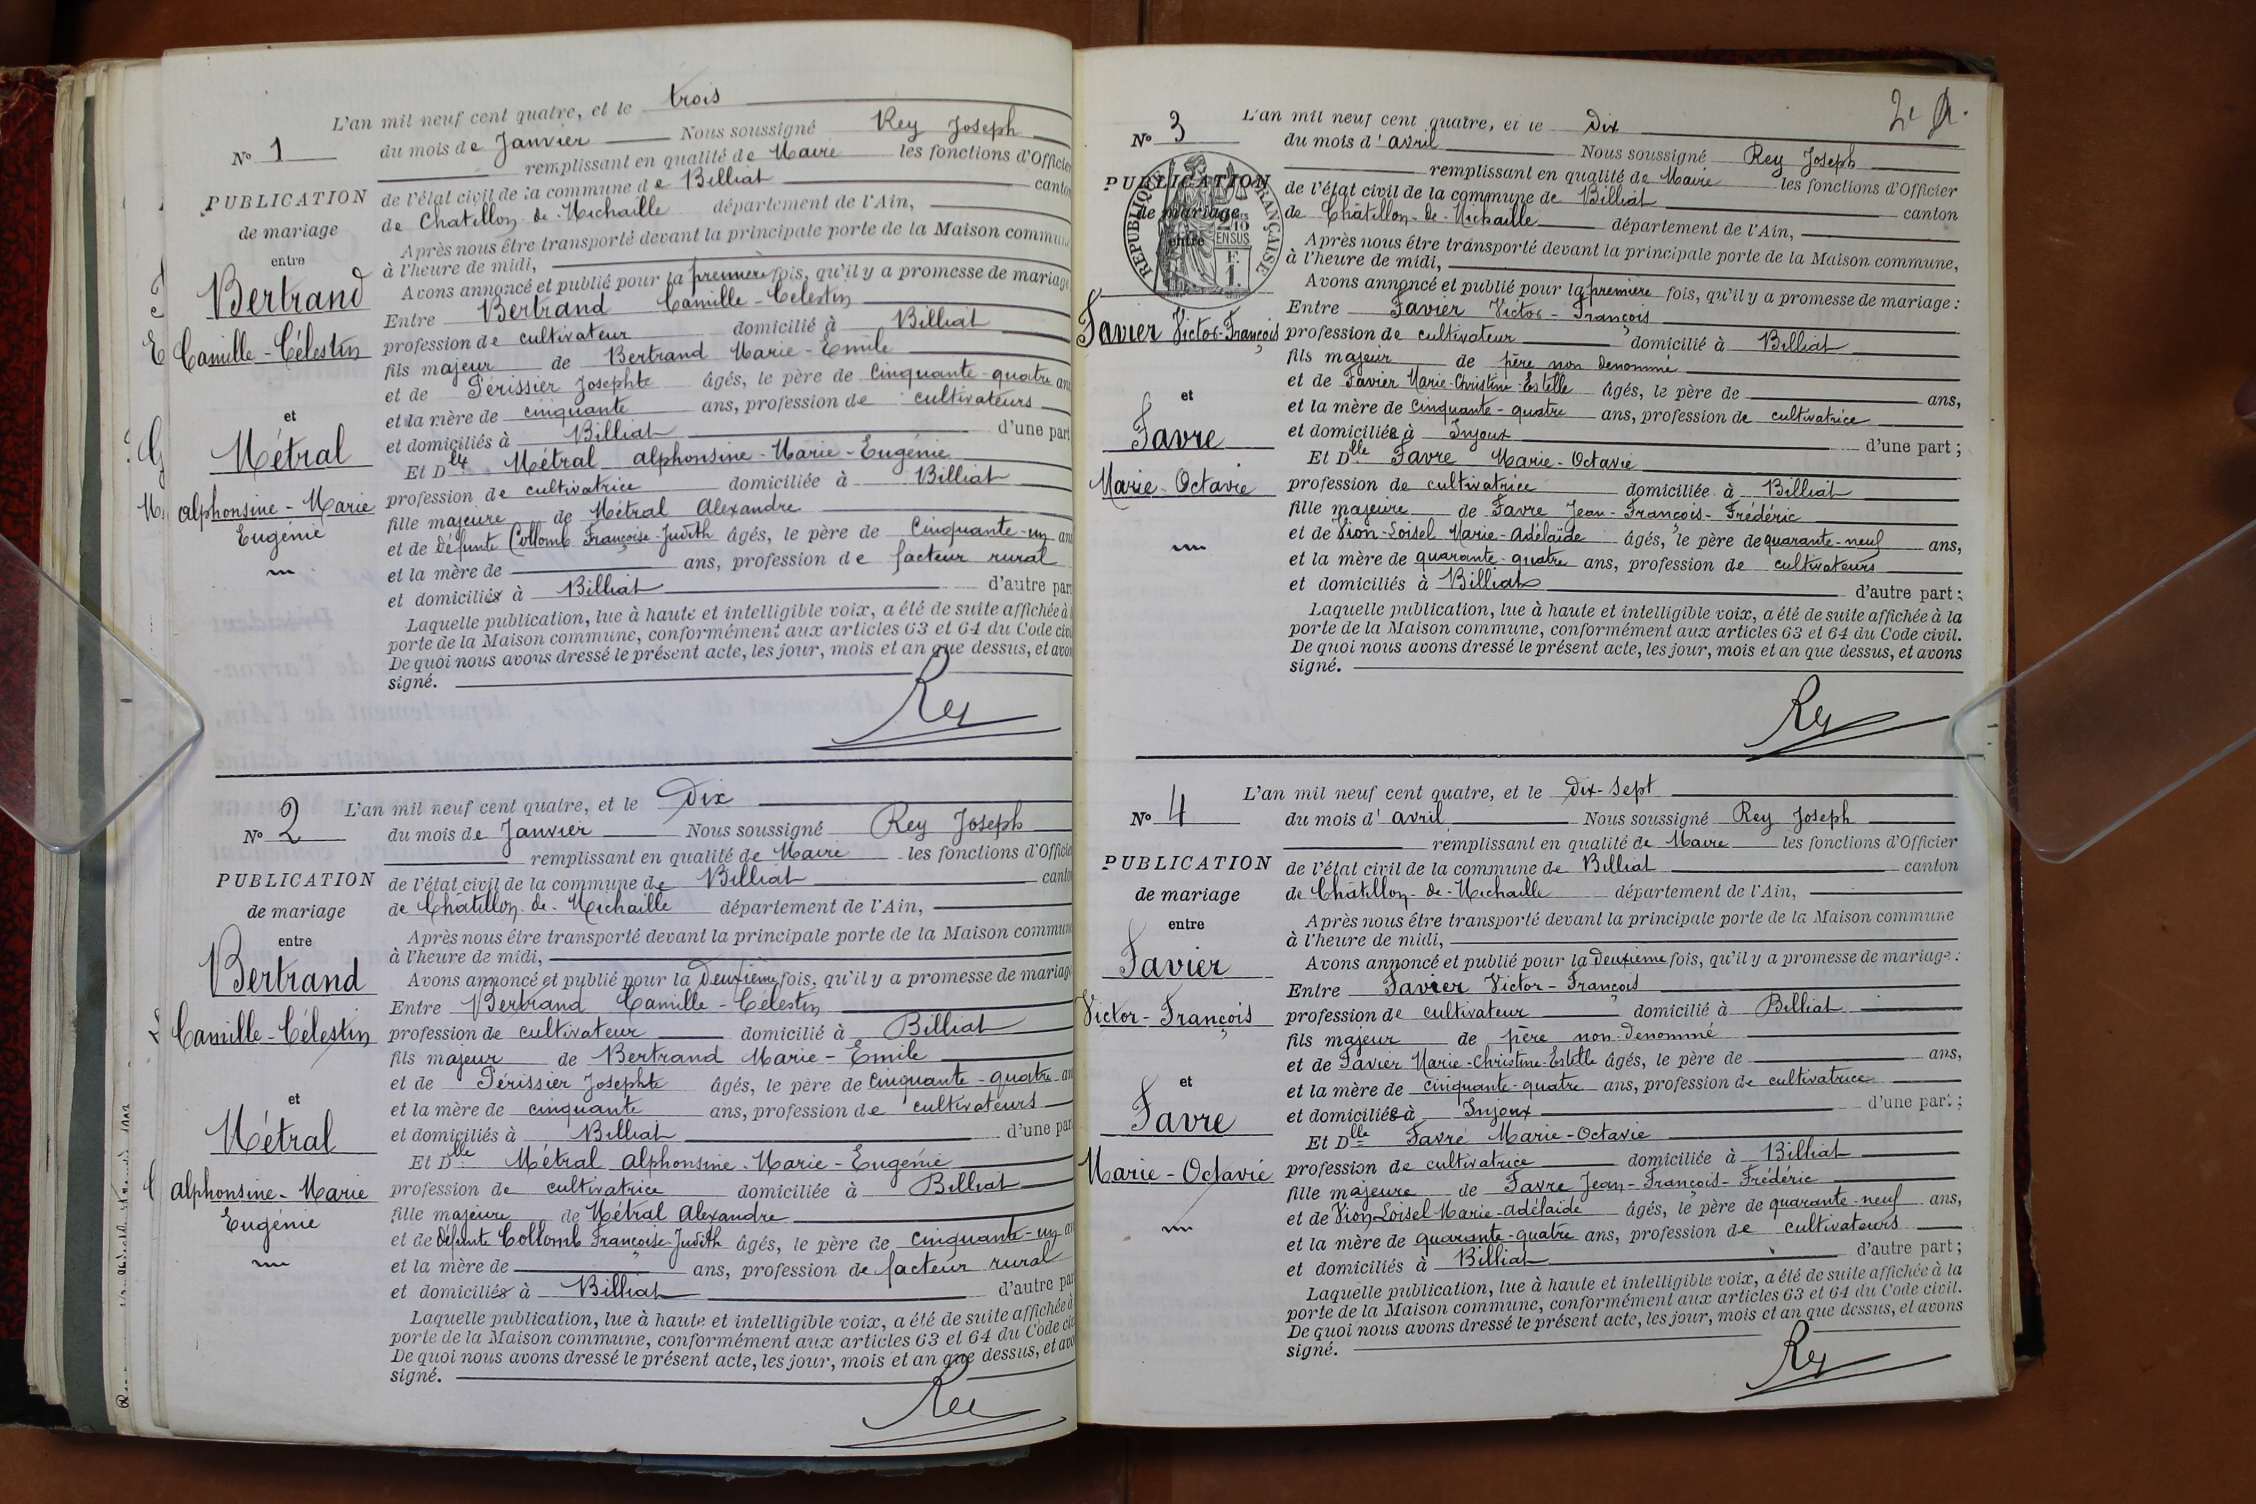 L'an mil neuf cent quatre, et le trois
No 1
du mois de Janvier Nous soussigné Rey Joseph
remplissant en qualité de Maire les fonctions d'Officier
PUBLICATION
de mariage
entre
Bertrand
Camille-Célestin
et
Métral
alphonsine-Marie
Eugénie
de l'état civil de la commune de Billiat canton
de Chatillon-de-Michaille département de l'Ain,
Après nous être transporté devant la principale porte de la Maison commune
à l'heure de midi,
Avons annoncé et publié pour la première fois, qu'il y a promesse de mariage
Entre Bertrand Camille-Célestin
profession de cultivateur domicilié à Billiat
fils majeur de Bertrand Marie-Emile
et de Périssier Josephte âgés, le père de cinquante-quatre ans
et la mère de cinquante ans, profession de cultivateurs
et domiciliés à Billiat d'une part
Et Dlle Métral alphonsine-Marie-Eugénie
profession de cultivatrice domiciliée à Billiat
fille majeure de Métral Alexandre
et de défunte Collomb Françoise-Judith âgés, le père de cinquante-un ans
et la mère de ans, profession de facteur rural
et domiciliés à Billiat d'autre part
Laquelle publication, lue à haute et intelligible voix, a été de suite affichée à
porte de la Maison commune, conformément aux articles 63 et 64 du Code civil
De quoi nous avons dressé le présent acte, les jour, mois et an que dessus, et avons
signé.
Rey
L'an mil neuf cent quatre, et le Dix
No 2
du mois de Janvier Nous soussigné Rey Joseph
remplissant en qualité de Maire les fonctions d'Officier
PUBLICATION
de mariage
entre
Bertrand
Camille-Célestin
et
Métral
alphonsine-Marie
Eugénie
de l'état civil de la commune de Billiat canton
de Chatillon-de-Michaille département de l'Ain,
Après nous être transporté devant la principale porte de la Maison commune
à l'heure de midi,
Avons annoncé et publié pour la Deuxième fois, qu'il y a promesse de mariage
Entre Bertrand Camille-Célestin
profession de cultivateur domicilié à Billiat
fils majeur de Bertrand Marie-Emile
et de Périssier Josephte âgés, le père de cinquante-quatre ans
et la mère de cinquante ans, profession de cultivateurs
et domiciliés à Billiat d'une part
Et Dlle Métral alphonsine-Marie-Eugénie
profession de cultivatrice domiciliée à Billiat
fille majeure de Métral Alexandre
et de défunte Collomb Françoise-Judith âgés, le père de cinquante-un ans
et la mère de ans, profession de facteur rural
et domiciliés à Billiat d'autre part
Laquelle publication, lue à haute et intelligible voix, a été de suite affichée à
porte de la Maison commune, conformément aux articles 63 et 64 du Code civil
De quoi nous avons dressé le présent acte, les jour, mois et an que dessus, et avons
signé.
Rey
L'an mil neuf cent quatre, et le Dix
No 3
du mois d'avril Nous soussigné Rey Joseph
remplissant en qualité de Maire les fonctions d'Officier
PUBLICATION
de mariage
entre
RÉPUBLIQUE FRANÇAISE
Favier Victor-François
et
Favre
Marie-Octavie
de l'état civil de la commune de Billiat canton
de Châtillon-de-Michaille département de l'Ain,
Après nous être transporté devant la principale porte de la Maison commune,
à l'heure de midi,
Avons annoncé et publié pour la première fois, qu'il y a promesse de mariage :
Entre Favier Victor-François
profession de cultivateur domicilié à Billiat
fils majeur de père non denommé
et de Favier Marie-Christine-Estelle âgés, le père de ans,
et la mère de cinquante-quatre ans, profession de cultivatrice
et domiciliée à Injoux d'une part ;
Et Dlle Favre Marie-Octavie
profession de cultivatrice domiciliée à Billiat
fille majeure de Favre Jean-François-Frédéric
et de Vion-Loisel Marie-Adélaïde âgés, le père de quarante-neuf ans,
et la mère de quarante-quatre ans, profession de cultivateurs
et domiciliés à Billiat d'autre part ;
Laquelle publication, lue à haute et intelligible voix, a été de suite affichée à la
porte de la Maison commune, conformément aux articles 63 et 64 du Code civil.
De quoi nous avons dressé le présent acte, les jour, mois et an que dessus, et avons
signé.
Rey
L'an mil neuf cent quatre, et le Dix-Sept
No 4
du mois d'avril Nous soussigné Rey Joseph
remplissant en qualité de Maire les fonctions d'Officier
PUBLICATION
de mariage
entre
Favier
Victor-François
et
Favre
Marie-Octavie
de l'état civil de la commune de Billiat canton
de Châtillon-de-Michaille département de l'Ain,
Après nous être transporté devant la principale porte de la Maison commune
à l'heure de midi,
Avons annoncé et publié pour la Deuxième fois, qu'il y a promesse de mariage :
Entre Favier Victor-François
profession de cultivateur domicilié à Billiat
fils majeur de père non-denommé
et de Favier Marie-Christine-Estelle âgés, le père de ans,
et la mère de cinquante-quatre ans, profession de cultivatrice
et domiciliée à Injoux d'une part ;
Et Dlle Favre Marie-Octavie
profession de cultivatrice domiciliée à Billiat
fille majeure de Favre Jean-François-Frédéric
et de Vion Loisel Marie-adélaïde âgés, le père de quarante-neuf ans,
et la mère de quarante-quatre ans, profession de cultivateurs
et domiciliés à Billiat d'autre part ;
Laquelle publication, lue à haute et intelligible voix, a été de suite affichée à la
porte de la Maison commune, conformément aux articles 63 et 64 du Code civil.
De quoi nous avons dressé le présent acte, les jour, mois et an que dessus, et avons
signé.
Rey